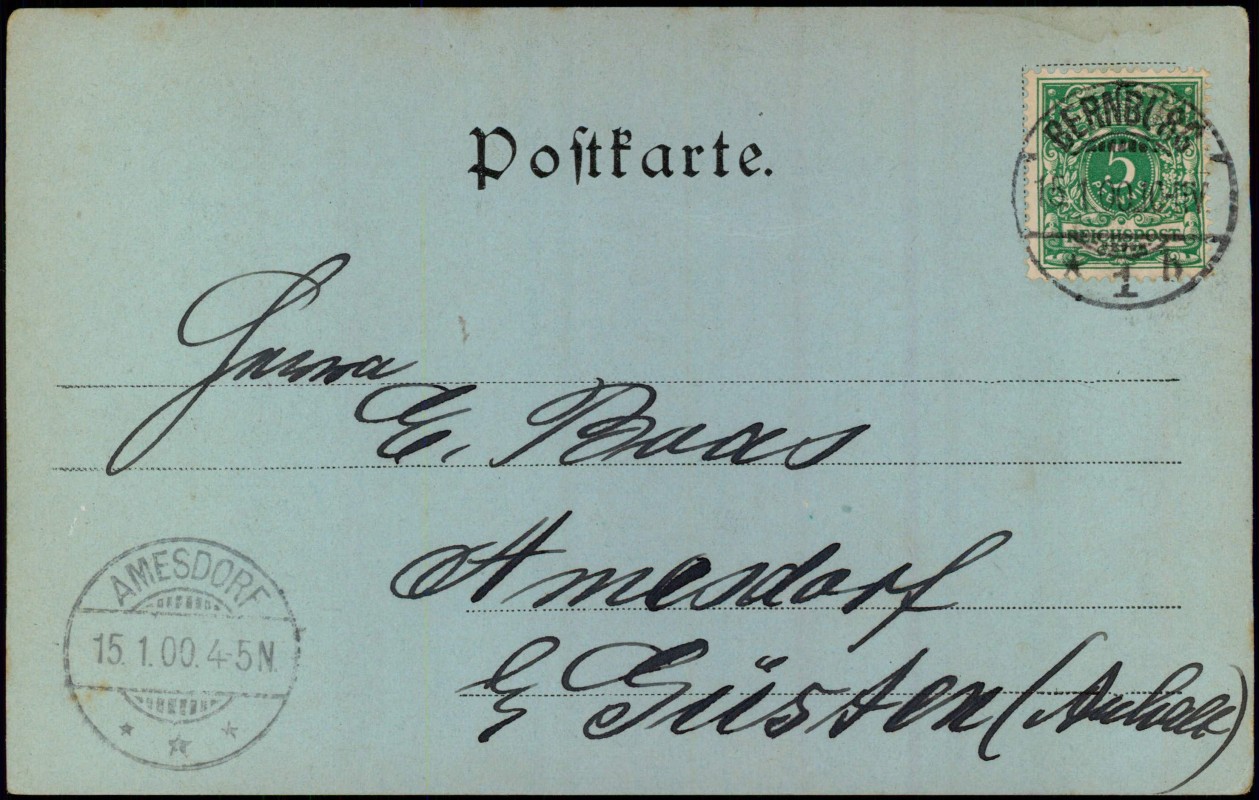 Postkarte.
BERNBURG
5
PFENNIG
REICHSPOST
* 1 h
Firma
E. Baas
Amesdorf
b/ Güsten (Anhalt)
AMESDORF
15.1.00.4-5N.